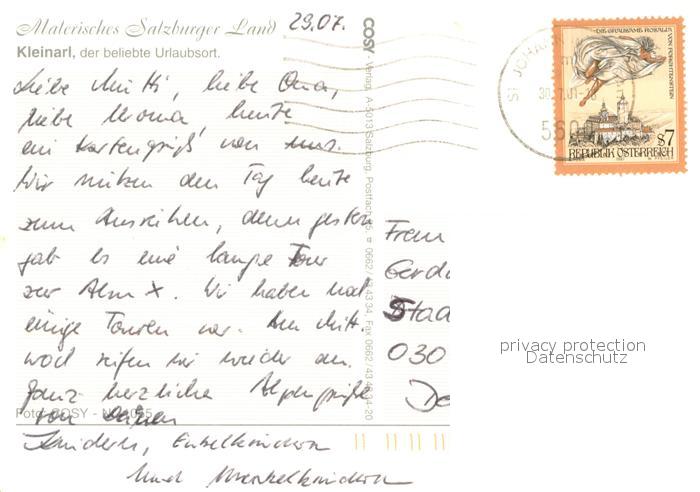 Malerisches Salzburger Land
29.07.
Kleinarl, der beliebte Urlaubsort.
Liebe Mutti, liebe Oma,
liebe Uroma, heute
ein Kartengruß von uns.
Wir nutzen den Tag heute
zum Ausruhen, denn gestern
gab es eine lange Tour
zur Alm X. Wir haben noch
einige Touren vor. Am Mitt-
woch reisen wir wieder an.
Ganz herzliche Alpengrüße
von
Kindern, Enkelkindern
und Urenkelkindern
Foto: COSY - Nr.
COSY - Verlag, A-5013 Salzburg, Postfach
0662 / 43 43 34, Fax 0662 / 43 43 34-20
Frau
Gerd
Stad
030
De
ST. JOHANN
30. 01-
560
DIE GRAUSAME ROSALIA
VON FORCHTENSTEIN
S 7
REPUBLIK ÖSTERREICH
privacy protection
Datenschutz